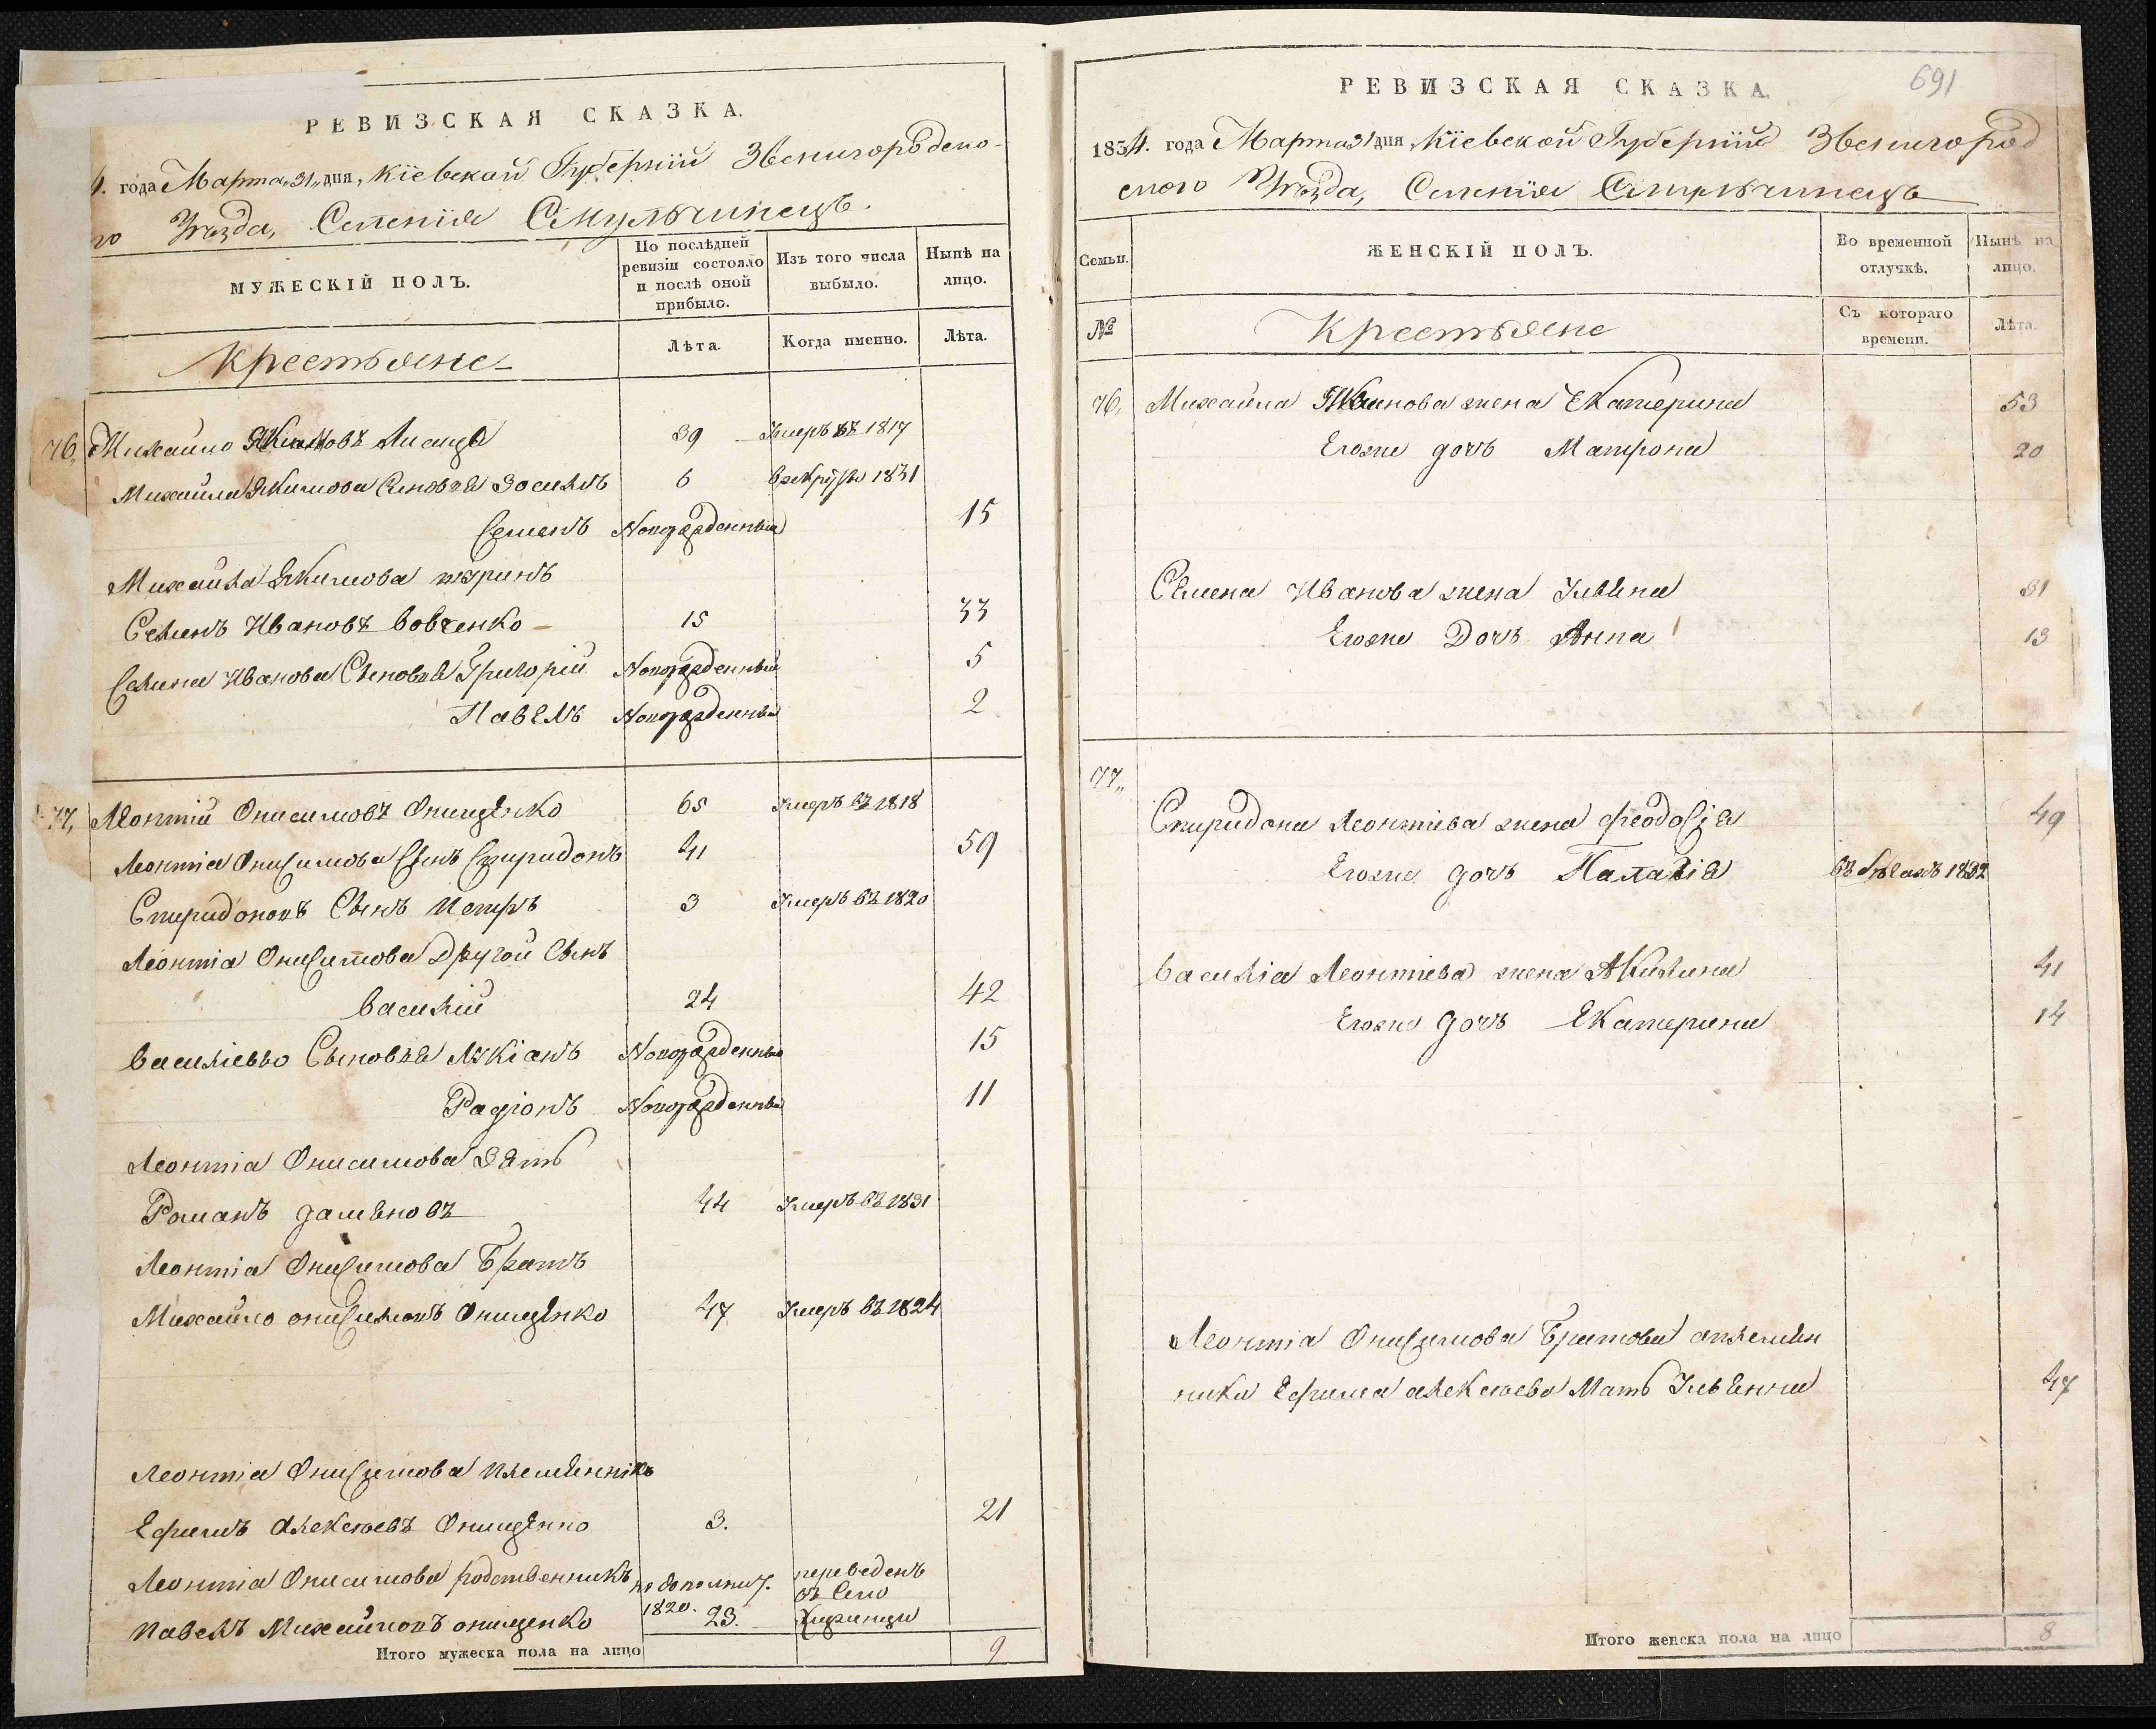 РЕВИЗСКАЯ СКАЗКА.
4. года Марта „31„ дня, Кіевской Губерніи Звенигородско-
го Уѣзда, Селенія Смульчинецъ.
МУЖЕСКІЙ ПОЛЪ.
По послѣдней ревизіи состояло и послѣ оной прибыло.
Изъ того числа выбыло.
Нынѣ на лицо.
Лѣта.
Когда именно.
Лѣта.
Крестьяне
76, Михайло Якимовъ 39 Умеръ въ 1817
Михаила Якимова Сыновья 6 в рекруты 1831
Семенъ Новорожденный 15
Михаила Якимова
Семенъ Ивановъ Вовченко 15 33
Семена Иванова Сыновья Григорій Новорожденный 5
Павелъ Новорожденный 2
77, Леонтій Онисимовъ Онищенко 65 Умеръ въ 1818
Леонтіа Онисимова Сынъ Спиридонъ 41 59
Спиридоновъ Сынъ Петръ 3 Умеръ въ 1820
Леонтіа Онисимова Другой Сынъ
Василій 24 42
Василіевы Сыновья Лукіанъ Новорожденный 15
Радіонъ Новорожденный 11
Леонтіа Онисимова Зять
Романъ Даменовъ 44 Умеръ въ 1831
Леонтіа Онисимова Братъ
Михайло Онисимовъ Онищенко 47 Умеръ въ 1824
Леонтіа Онисимова Племенникъ
Ефимъ Алексѣевъ Онищенко 3. 21
Леонтіа Онисимова родственникъ по дополнит. переведенъ
Павелъ Михайловъ Онищенко 1820. 23. въ Село
Итого мужеска пола на лицо 9
691
РЕВИЗСКАЯ СКАЗКА.
1834. года Марта 31 дня, Кіевской Губерніи Звенигород
ского Уѣзда, Селенія Смульчинецъ
Семьи.
ЖЕНСКІЙ ПОЛЪ.
Во временной отлучкѣ.
Нынѣ на лицо.
№
Крестьяне
Съ котораго времени.
Лѣта.
76, Михаила Якимова жена Екатерина 53
Егоже дочь Матрона 20
Семена Иванова жена Ульяна 31
Егоже Дочь Анна 13
77,, Спиридона Леонтіева жена Феодосія 49
Егоже дочь Палагія въ бѣгахъ 1832
Василіа Леонтіева жена Акилина 41
Егоже дочь Екатерина 14
Леонтіа Онисимова Братова племен
ника Ефима Алексѣева Мать Ульянна 47
Итого женска пола на лицо 8